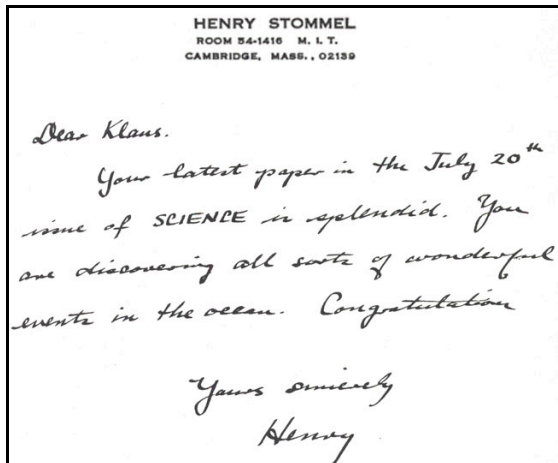 HENRY STOMMEL
ROOM 54-1416 M. I. T.
CAMBRIDGE, MASS., 02139
Dear Klaus.
Your latest paper in the July 20th
issue of SCIENCE is splendid. You
are discovering all sorts of wonderful
events in the ocean. Congratulations
Yours sincerely
Henry